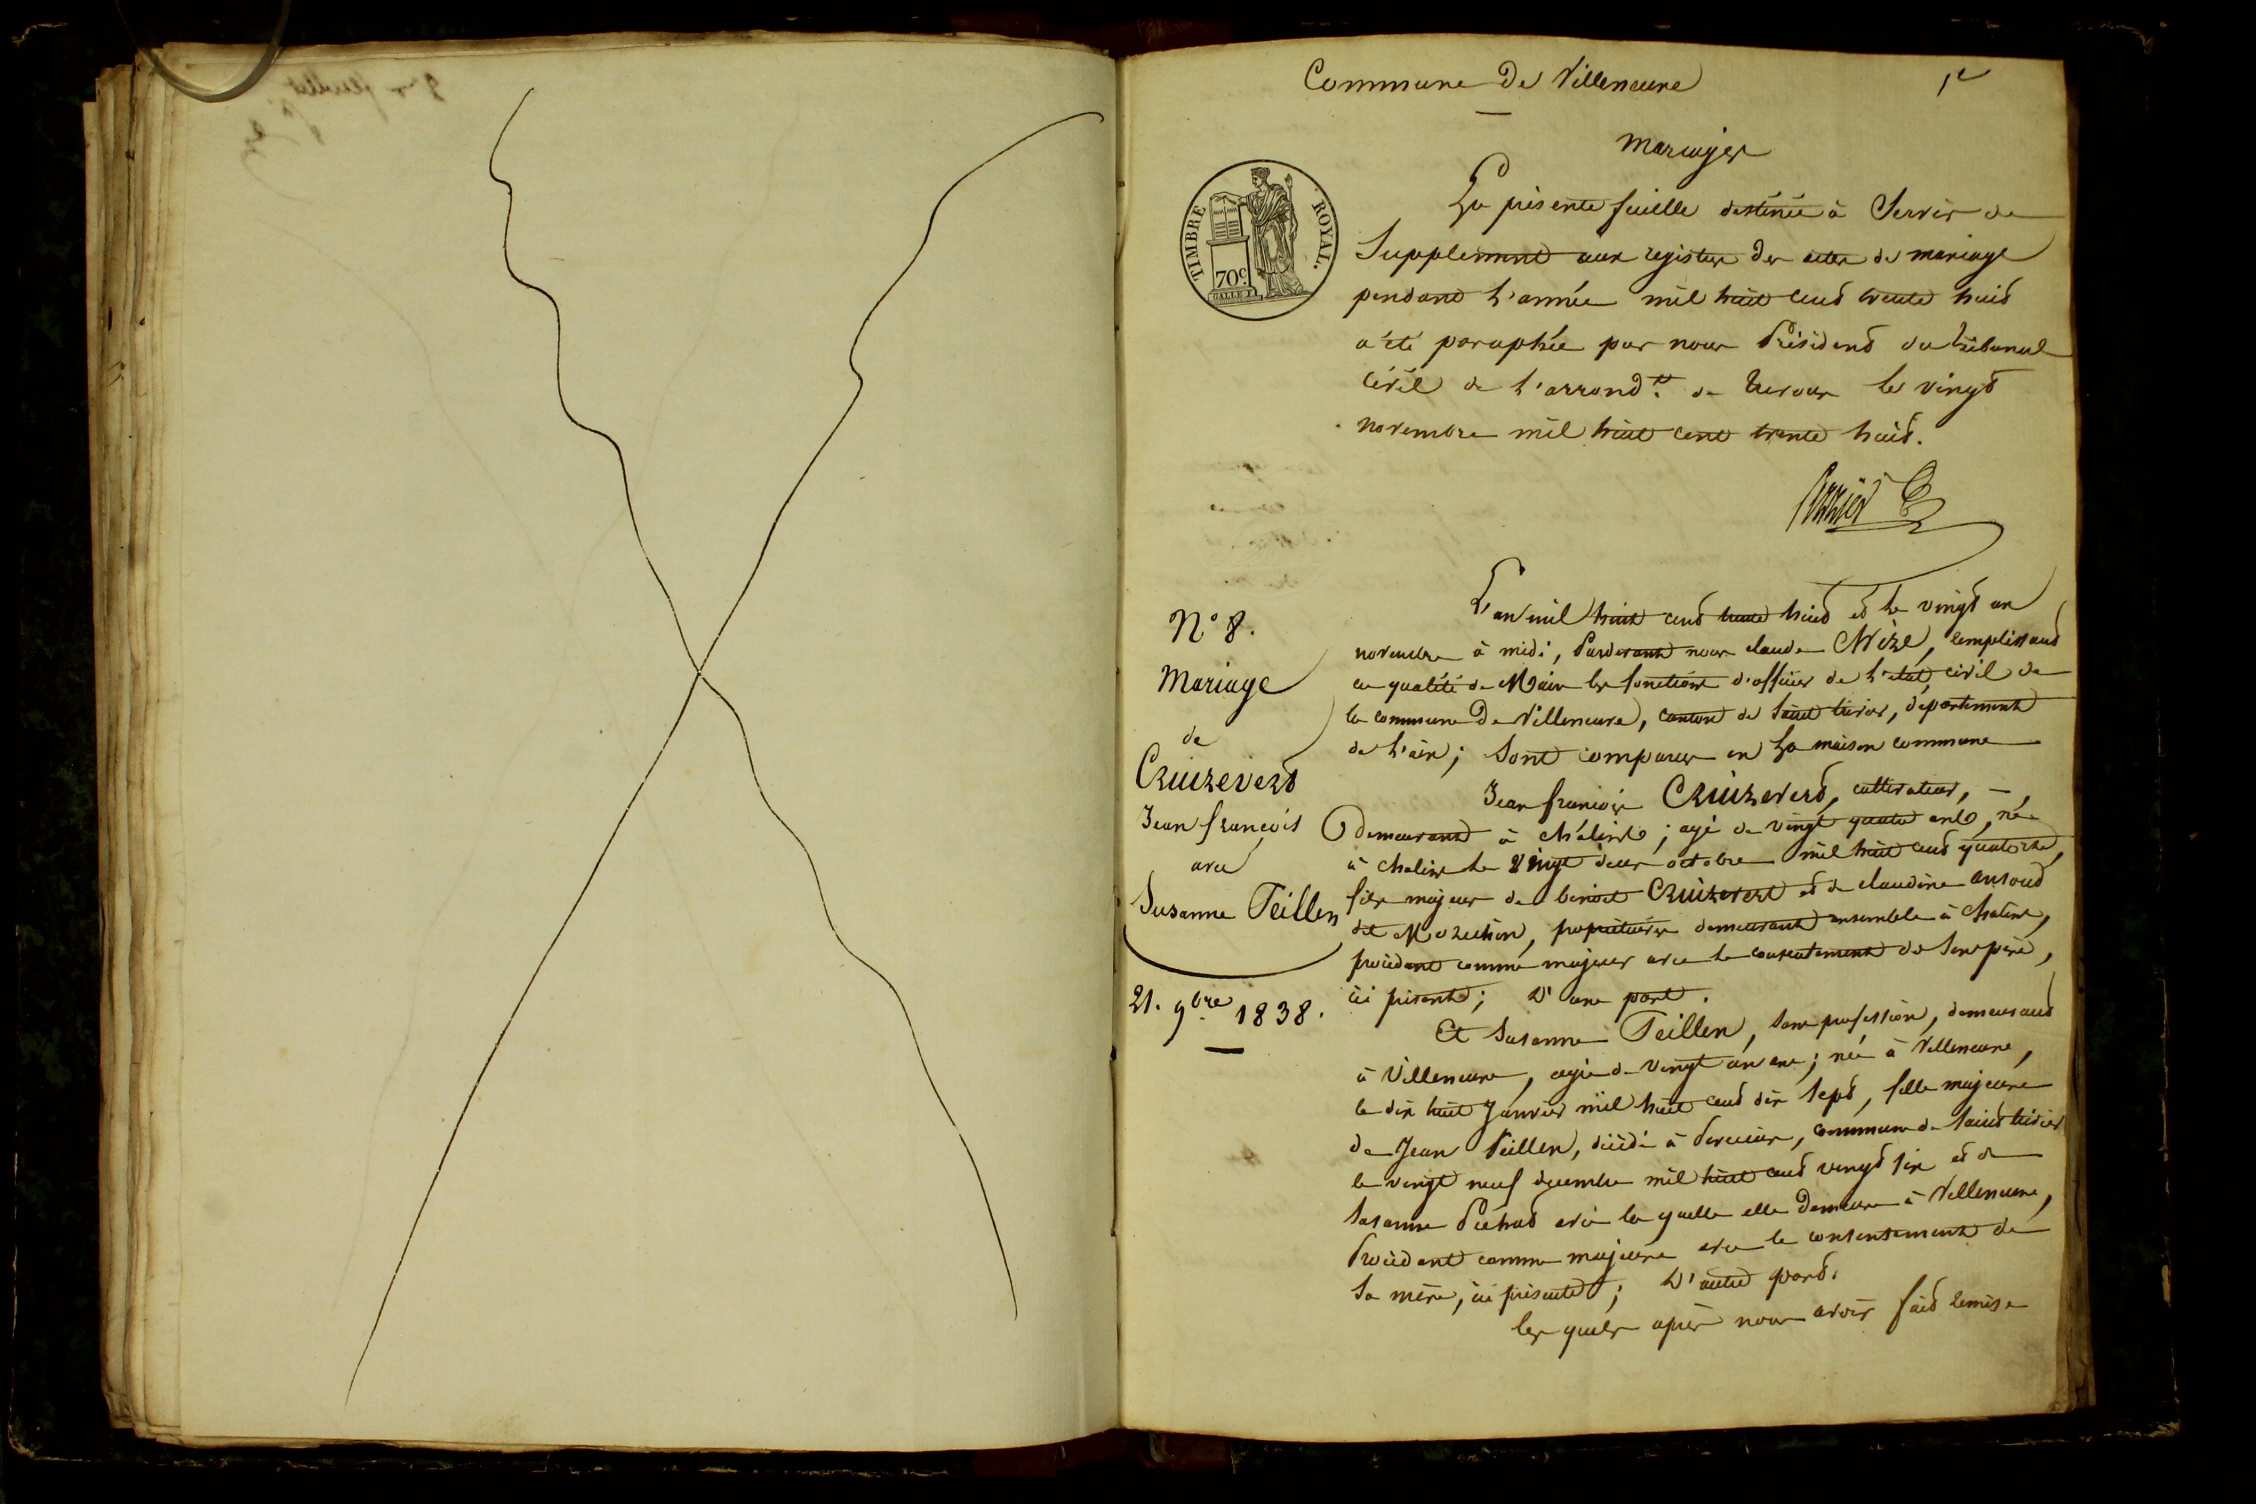 Commune De Villeneuve
1er
mariages
La présente feuille destinée à Servir de
Supplement aux registres des actes de mariage
pendant l'année mil huit cent trente huit
a été paraphée par nous Président du tribunal
Civil de l'arrondt. de Trevoux le vingt
novembre mil huit cent trente huit.
TIMBRE ROYAL.
70 c.
N° 8.
Mariage
de
Cruizevert
Jean françois
avec
Susanne Teillen
21. 9bre 1838.
L'an mil huit cent trente huit et le vingt un
novembre à midi, Pardevant nous claude Nizé, remplissant
en qualité de Maire les fonctions d'officier de l'etat civil de
la commune De Villeneuve, canton de Saint trivier, département
de l'ain; Sont comparus en La maison commune
Jean françois Cruizevert, cultivateur, —,
demeurant à Chaleins; agé de vingt quatre ans, né
à Chaleins le vingt deux octobre mil huit cent quatorze,
fils majeur de benoit Cruizevert et de claudine
dit propriétaires demeurant ensemble à Chaleins,
procédant comme majeur avec le consentement de Son père,
ici présent; D'une part.
Et Susanne Teillen, sans profession, demeurant
à Villeneuve, agée de vingt un ans; née à Villeneuve,
le dix huit Janvier mil huit cent dix Sept, fille majeure
de Jean Teillen, décédé à Percieux, commune de Saint trivier
le vingt neuf decembre mil huit cent vingt six et de
Susanne avec la quelle elle Demeure à Villeneuve,
Procédant comme majeure avec le consentement de
Sa mère, ici présente; D'autre part.
les quels après nous avoir fait remise